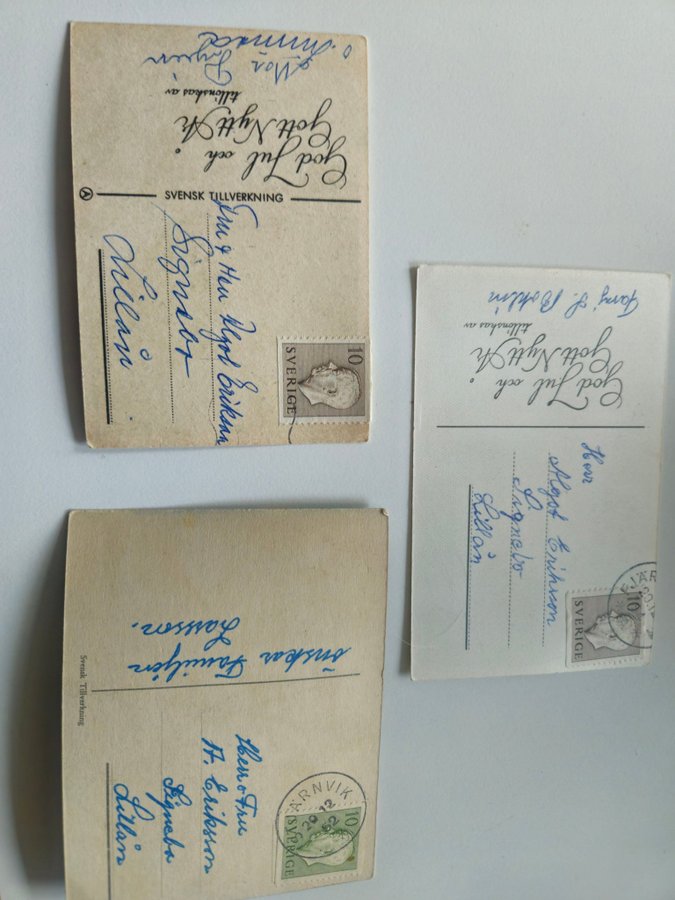 God Jul och
Gott Nytt År
tillönskas av
Mor
SVENSK TILLVERKNING
SVERIGE 10
Fru & Herr Algot Eriksson
Signebo
Lillån
God Jul och
Gott Nytt År
tillönskas av
Famj S. Bohlin
SVERIGE 10
Herr
Algot Eriksson
Signebo
Lillån
önskar Familjen
Larsson.
Svensk Tillverkning
ÄRNVIK
20 12
52
SVERIGE 10
Herr o Fru
A. Eriksson
Signebo
Lillån